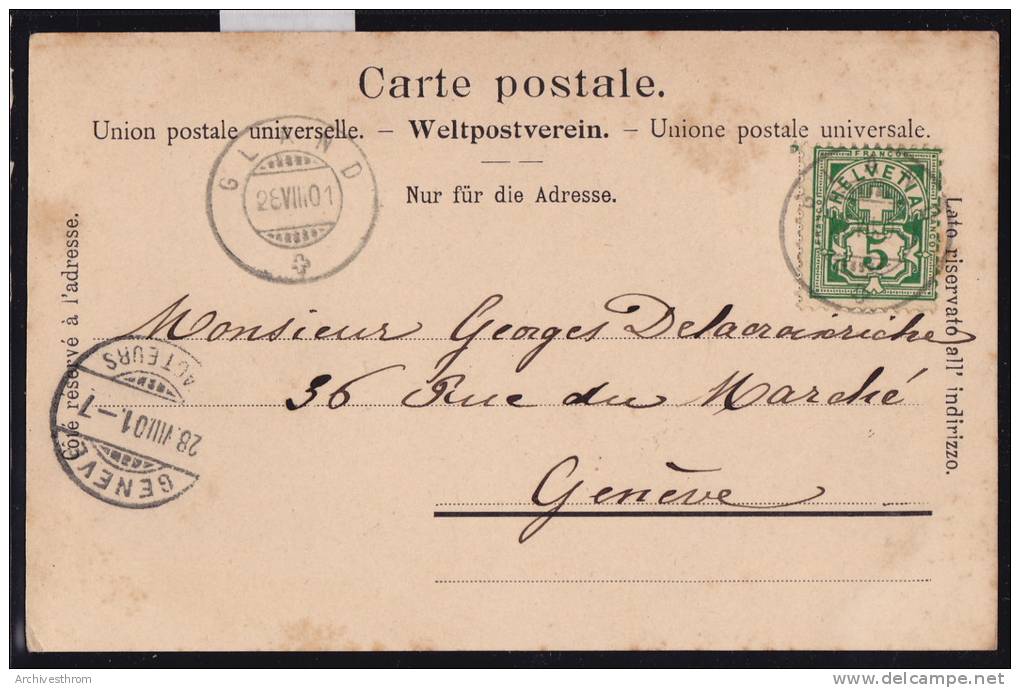 Carte postale.
Union postale universelle. – Weltpostverein. – Unione postale universale.
Nur für die Adresse.
Côté réservé à l'adresse.
Lato riservato all' indirizzo.
GLAND
28.VIII.01
FRANCO
HELVETIA
FRANCO
FRANCO
5
Monsieur Georges Delacroixriche
36 Rue du Marché
Genève
FACTEURS
28.VIII.01.–7
GENÈVE
Archivesthrom